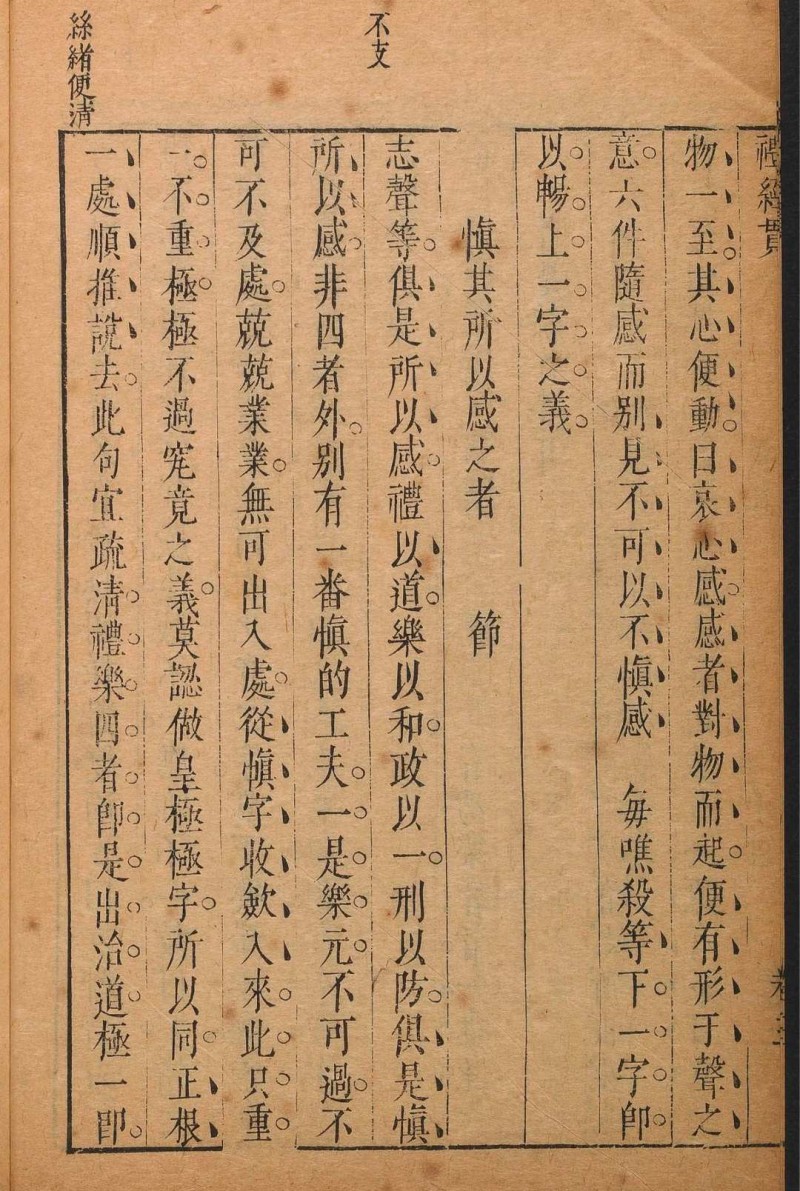 禮經貫
物一至其心便動曰哀心感感者對物而起便有形于聲之
意六件隨感而别見不可以不慎感　每噍殺等下一字卽
以暢上一字之義
慎其所以感之者　節
不支
志聲等俱是所以感禮以道樂以和政以一刑以防俱是慎
所以感非四者外别有一番慎的工夫一是樂元不可過不
可不及處兢兢業業無可出入處從慎字收斂入來此只重
一不重極極不過究竟之義莫認做皇極極字所以同正根
絲緒便清
一處順推說去此句宜疏清禮樂四者卽是出治道極一卽